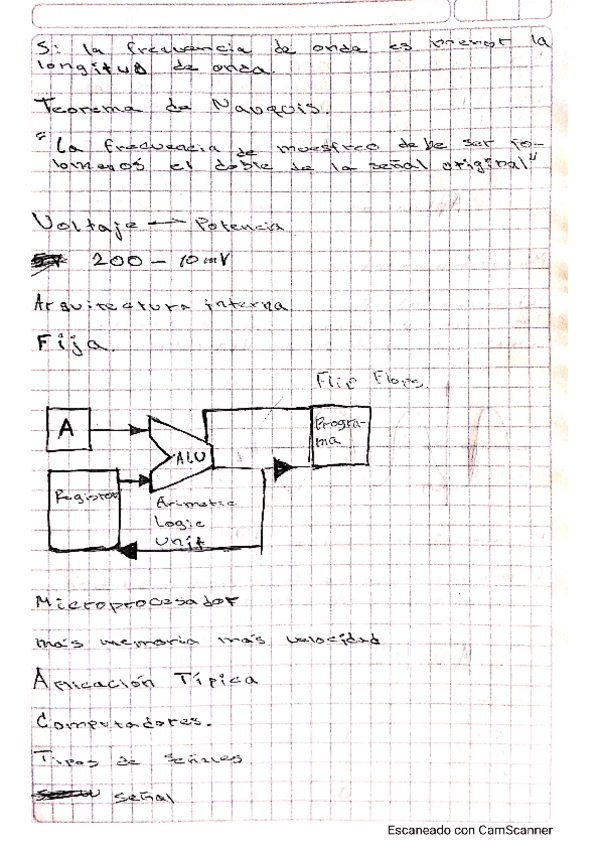 Si la frecuencia de onda es menor la
longitud de onda.
Teorema de Nauquis.
"La frecuencia de muestreo debe ser po-
lomenos el doble de la señal original"
Voltaje → Potencia
200 - 10 mV
Arquitectura interna
Fija.
Flip Flops.
A
ALU
Progra-
ma
Register
Arimetic
Logic
Unit
Microprocesador
más memoria más velocidad
Aplicación Típica
Computadores.
Tipos de señales
señal
Escaneado con CamScanner